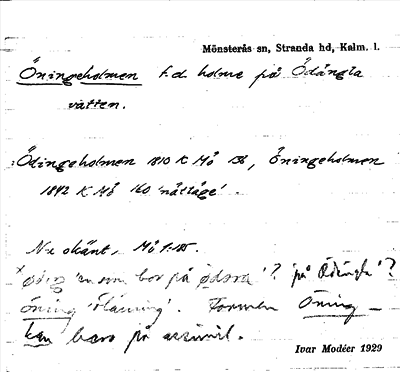 Mönsterås sn, Stranda hd, Kalm. l.
Öningeholmen f.d. holme på Ödängla
vatten.
Ödingeholmen 1810 K Mö 136, Öningeholmen
1842 K Mö 160 'nåtläge'.
Nu okänt, Mö 1:185.
'en som bor på ödsra'? 'på Ödängla'?
öning 'ölänning'. Formen Öning-
kan bero på assimil.
Ivar Modéer 1929